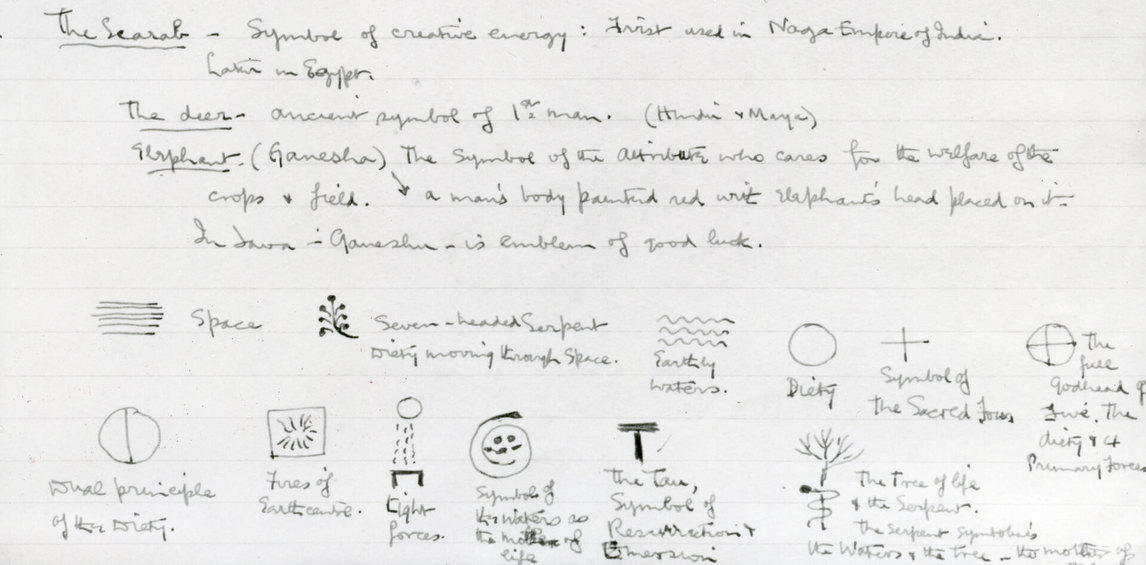 The Scarab - Symbol of creative energy : First used in Naga Empire of India.
Later in Egypt.
The deer - ancient symbol of 1st man. (Hindu & Maya)
Elephant. (Ganesha) The Symbol of the Attribute who cares for the welfare of the
crops & field. a man's body painted red with Elephant's head placed on it -
In Java - Ganesha - is emblem of good luck.
Space
Seven-headed Serpent
Diety moving through Space.
Earthly
waters.
Diety
Symbol of
the Sacred Four
The
full
Godhead of
Five. The
diety & 4
Primary Forces
Dual principle
of the Diety.
Fires of
Earth centre.
Light
forces.
Symbols of
the waters as
the mother of
life
The Tau,
Symbol of
Resurrection &
Emersion
The Tree of life
& the Serpent.
The Serpent Symbolises
the Waters & the Tree - the mother of